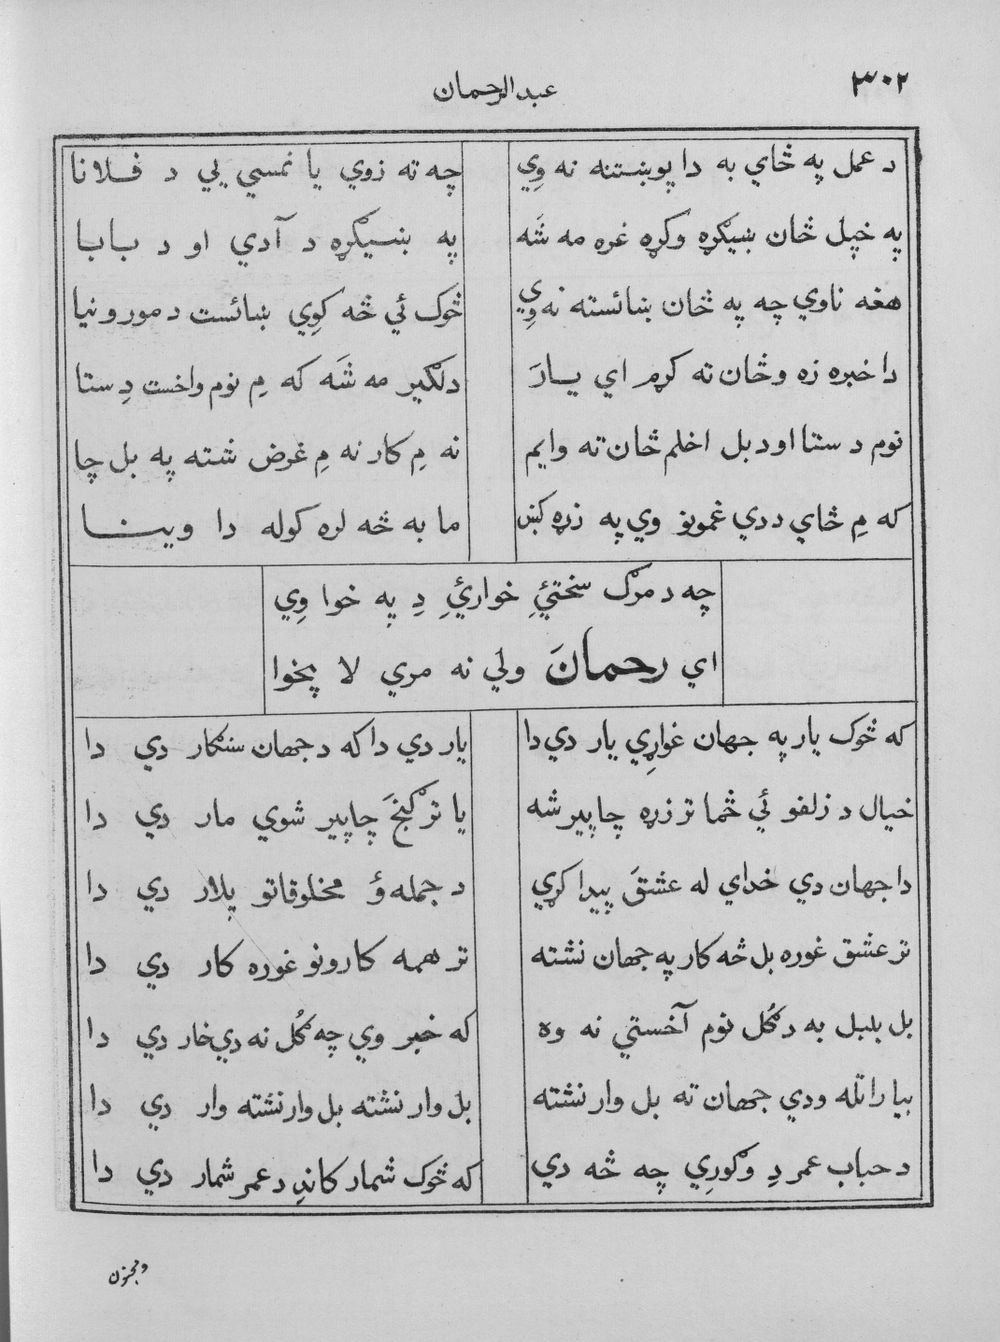 ٣٠٢
عبدالرحمان
د عمل په ځاي به دا پوښتنه نه وِي
چه ته زوي يا نمسي يي د فلانا
په خپل ځان ښيګړه وکړه غره مه شَه
په ښيګړه د آدي او د بابا
هغه ناوي چه په ځان ښائسته نه وِي
څوک ئي څه کوِي ښائست د مور و نيا
دا خبره زه و ځان ته کړم اي يارَ
دلګير مه شَه که مِ نوم واخست دِ ستا
نوم د ستا او د بل اخلم ځان ته وايم
نه مِ کار نه مِ غرض شته په بل چا
که مِ ځاي د دي غمونو وي په زړه کښ
ما به څه لره کوله دا وينا
چه د مرګ سختئِ خوارئِ دِ په خوا وِي
اي رحمانَ ولي نه مري لا پخوا
که څوک يار په جهان غواړِي يار دي دا
يار دي دا که د جهان سنګار دي دا
خيال د زلفو ئي ځما تر زړه چاپير شه
يا تر ګنجَ چاپير شوي مار دي دا
دا جهان دي خداي له عشقَ پيدا کړي
د جمله ؤ مخلوقاتو پلار دي دا
تر عشق غوره بل څه کار په جهان نشته
تر همه کارونو غوره کار دي دا
بل بلبل به د ګُل نوم آخستي نه وه
که خبر وي چه ګُل نه دي خار دي دا
بيا راتله ودي جهان ته بل وار نشته
بل وار نشته بل وار نشته وار دي دا
د حباب عمر دِ وګورِي چه څه دي
که څوک شمار کاندِ د عمر شمار دي دا